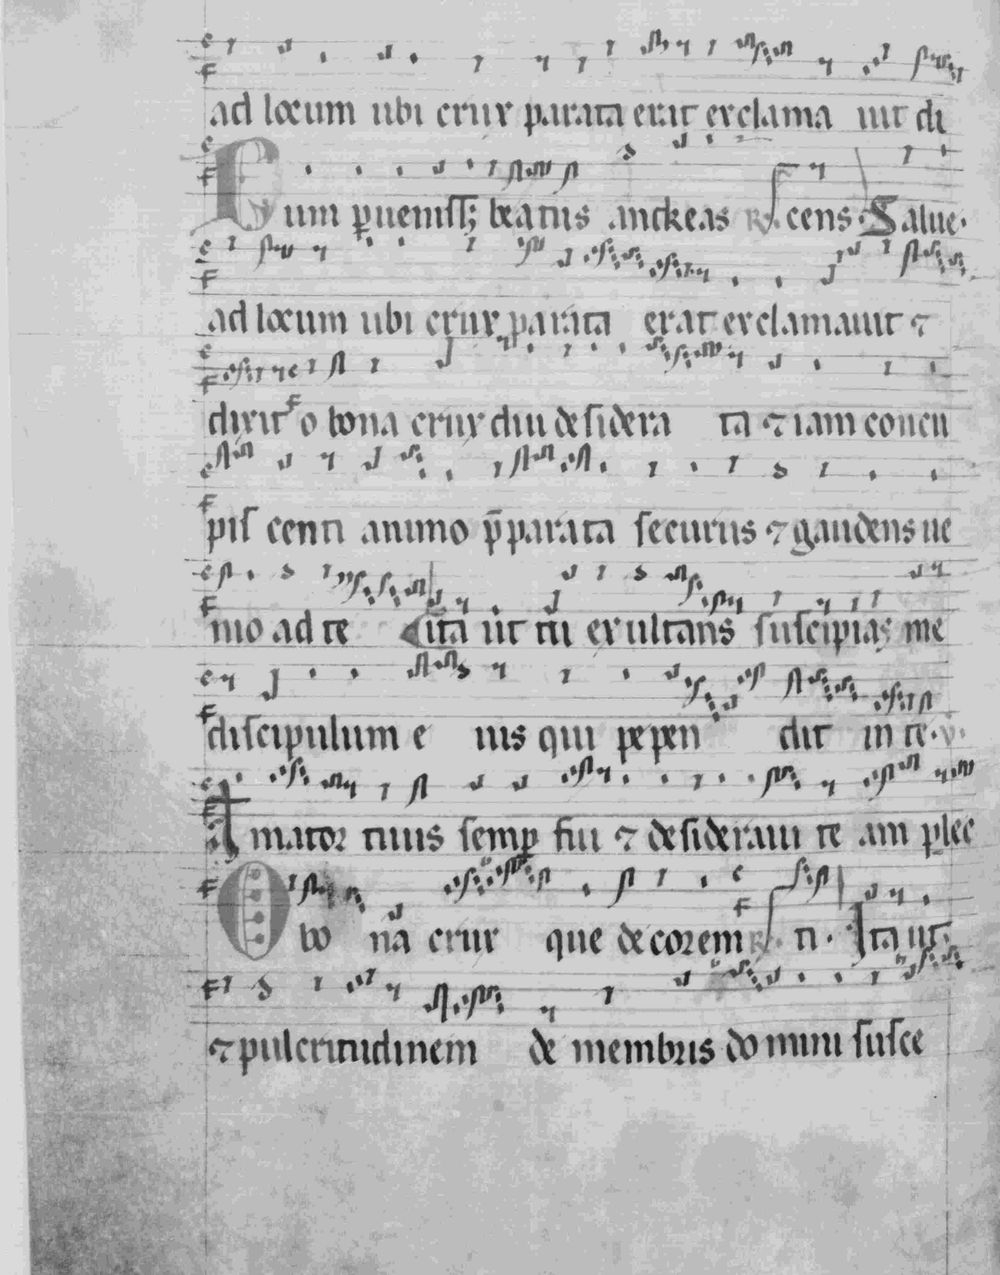 ad locum ubi crux parata erat exclama uit di
Cum p̱uenisſ; beatus andreas ℟. cens. Salue.
ad locum ubi crux parata erat exclamauit ⁊
dixit o bona crux diu desidera ta ⁊ iam concu
piſ centi animo p̄parata securus ⁊ gaudens ue
nio ad te Ita ut tu exultans suscipias me
discipulum e ius qui pepen dit in te. v.
Amator tuus semꝑ fui ⁊ desideraui te am plec
O bo na crux que decorem ℟. ti. Ita ut
⁊ pulcritudinem de membris domini susce